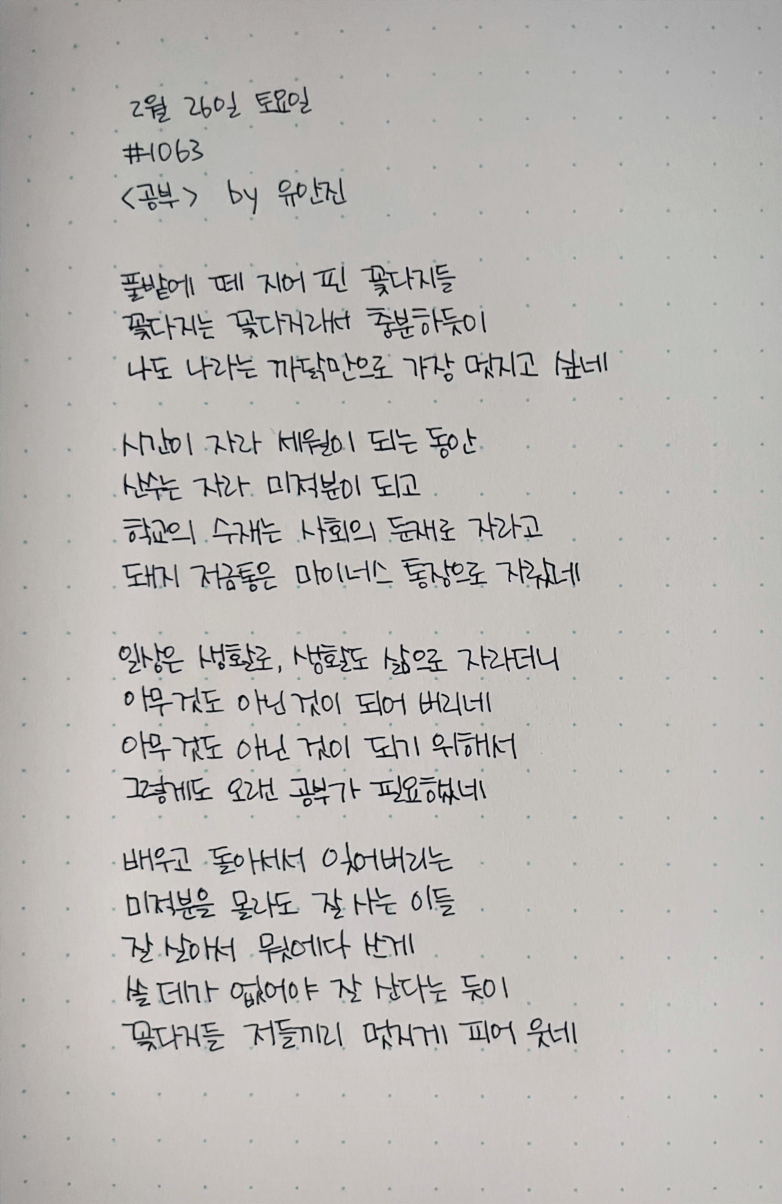 2월 26일 토요일
#1063
<공부> by 유안진
풀밭에 떼 지어 핀 꽃다지들
꽃다지는 꽃다지라서 충분하듯이
나도 나라는 까닭만으로 가장 멋지고 싶네
시간이 자라 세월이 되는 동안
산수는 자라 미적분이 되고
학교의 수재는 사회의 둔재로 자라고
돼지 저금통은 마이너스 통장으로 자랐네
일상은 생활로, 생활도 삶으로 자라더니
아무것도 아닌 것이 되어 버리네
아무것도 아닌 것이 되기 위해서
그렇게도 오랜 공부가 필요했네
배우고 돌아서서 잊어버리는
미적분을 몰라도 잘 사는 이들
잘 살아서 뭣에다 쓰게
쓸 데가 없어야 잘 산다는 듯이
꽃다지들 저들끼리 멋지게 피어 웃네